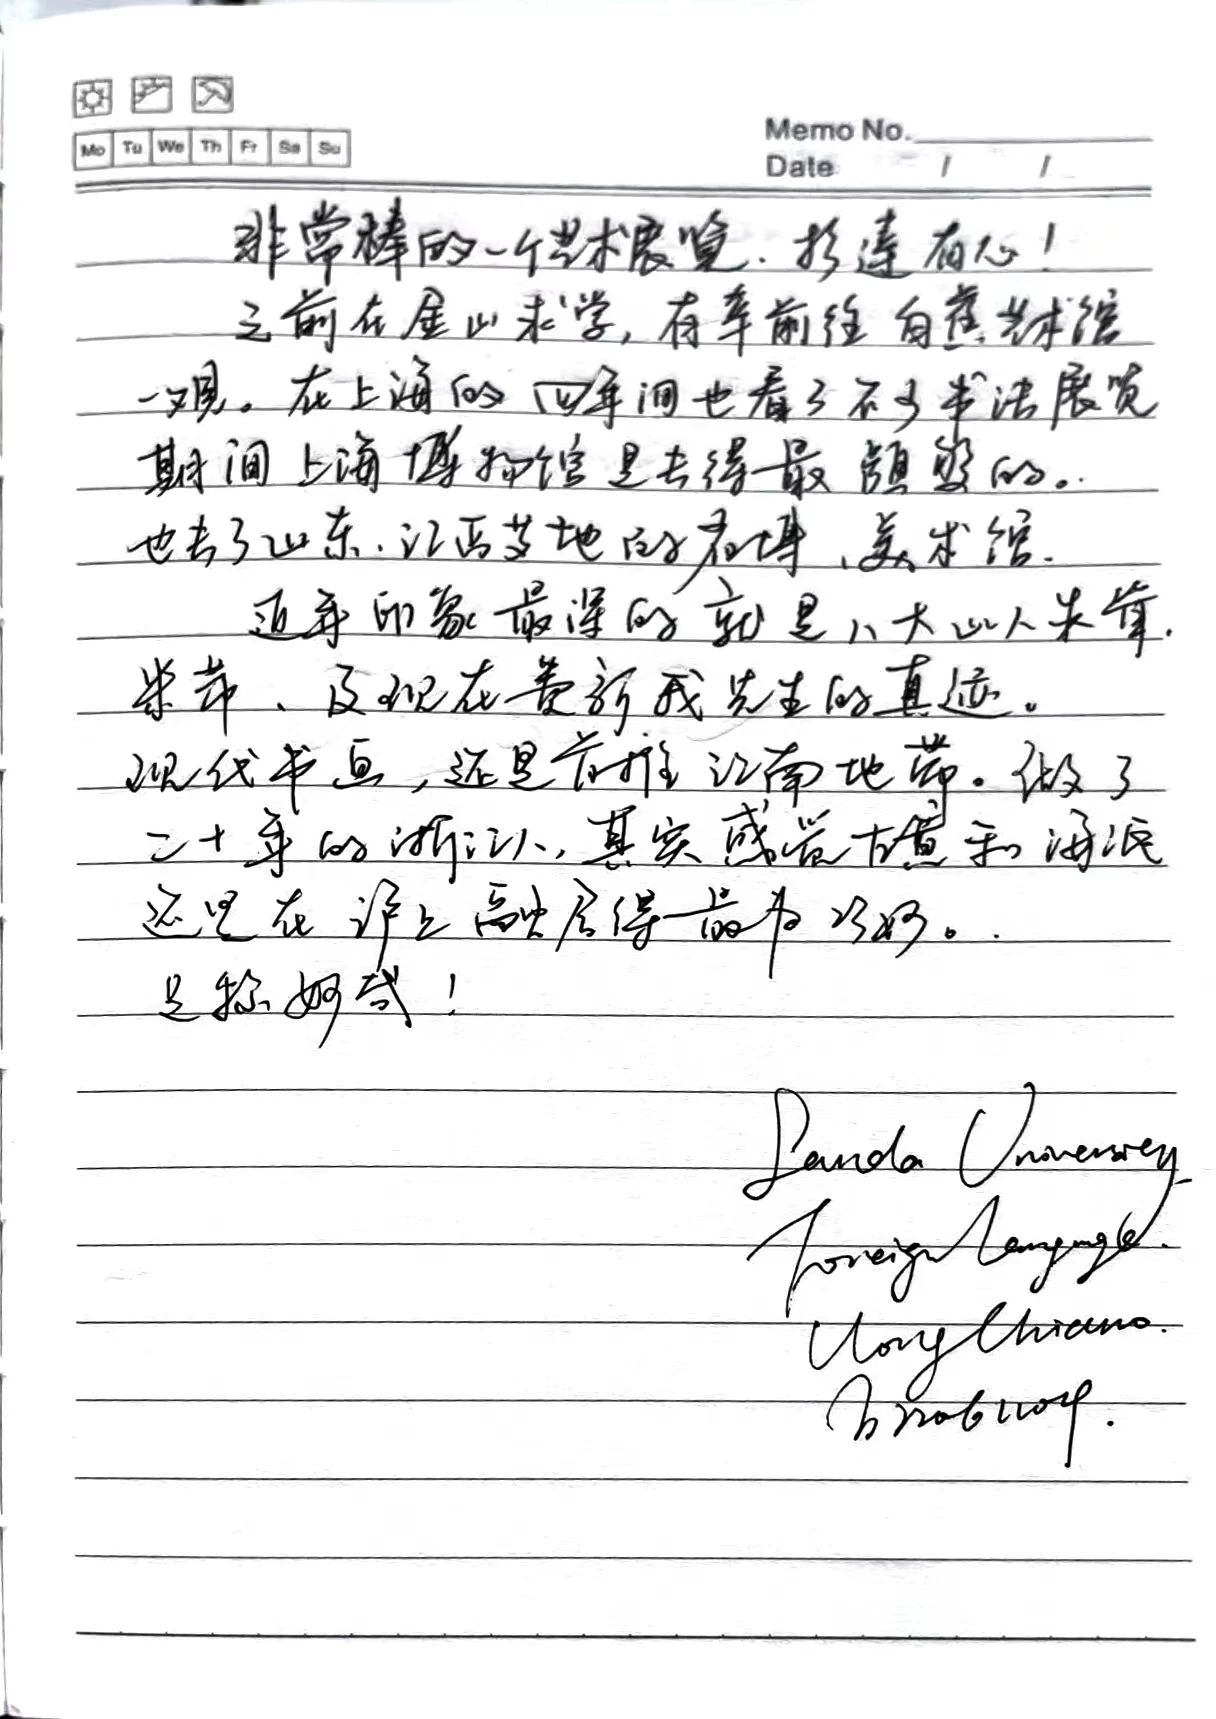 Mo Tu We Th Fr Sa Su
Memo No.
Date / /
非常棒的一个艺术展览.杉达有心!
之前在金山求学,有幸前往白蕉艺术馆
一观。在上海的四年间也看了不少书法展览
期间上海博物馆是去得最频繁的。
也去了山东、江西等地的省博、美术馆.
近年印象最深的就是八大山人朱耷.
、及现在黄 我先生的真迹。
现代书画,还是首推江南地带。做了
二十年的浙江人,其实感觉古意和海派
还是在沪上融合得最为巧妙。
足称妙哉!
Sanda University
Foreign Language.